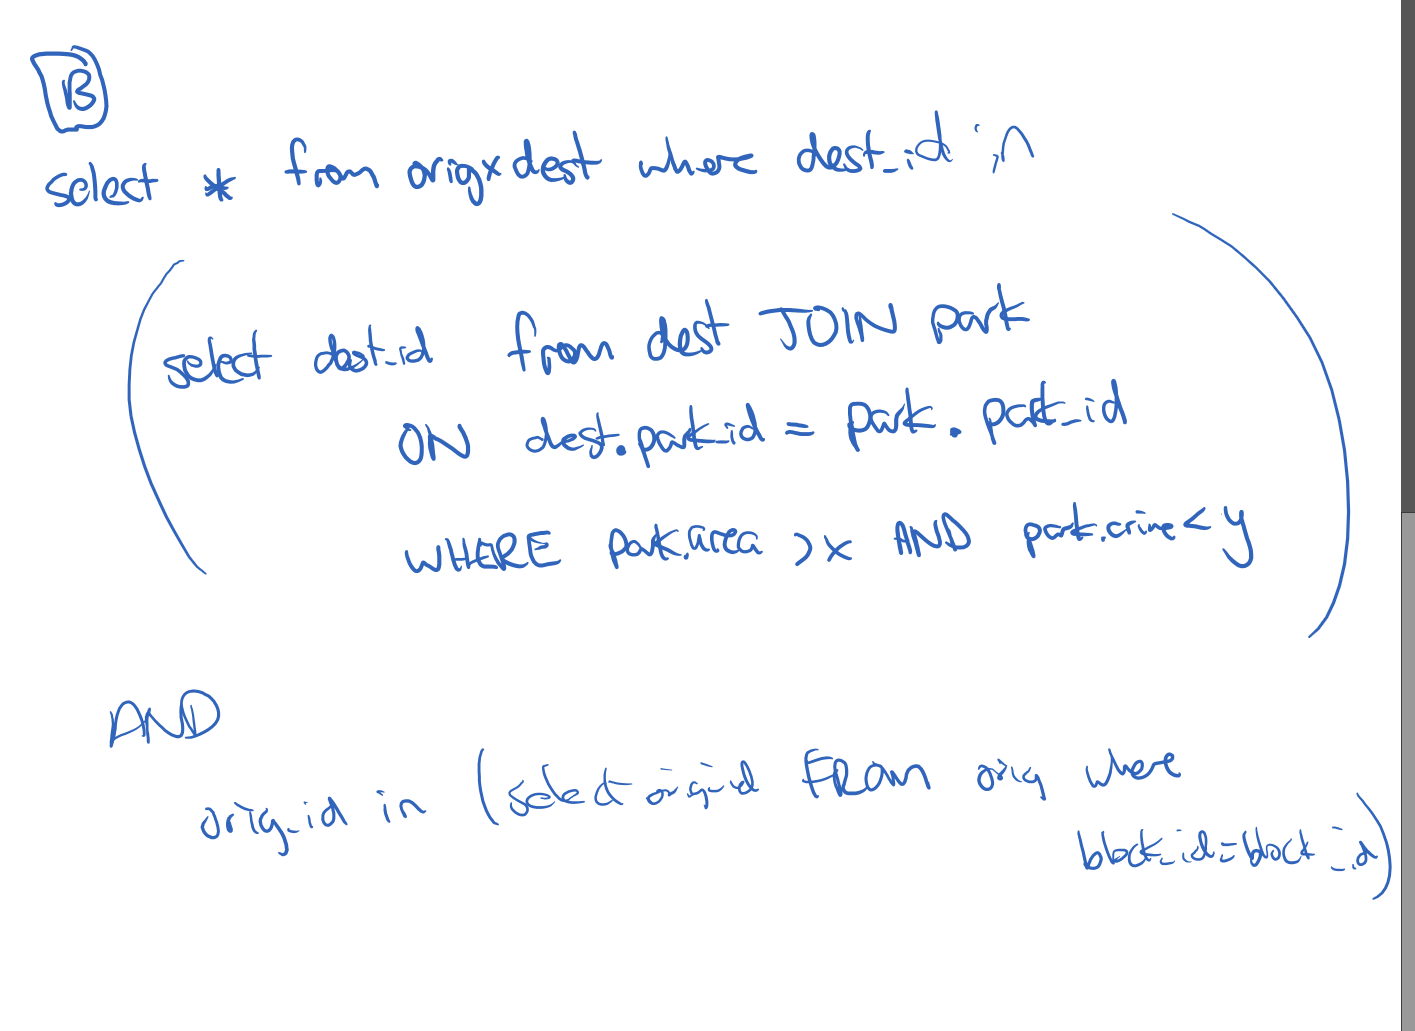 B
select * from origxdest where dest_id in
(select dest_id from dest JOIN park
ON dest.park_id = park.park_id
WHERE park.area > x AND park.crime < y)
AND
orig_id in (select orig_id FROM orig where
block_id = block_id)